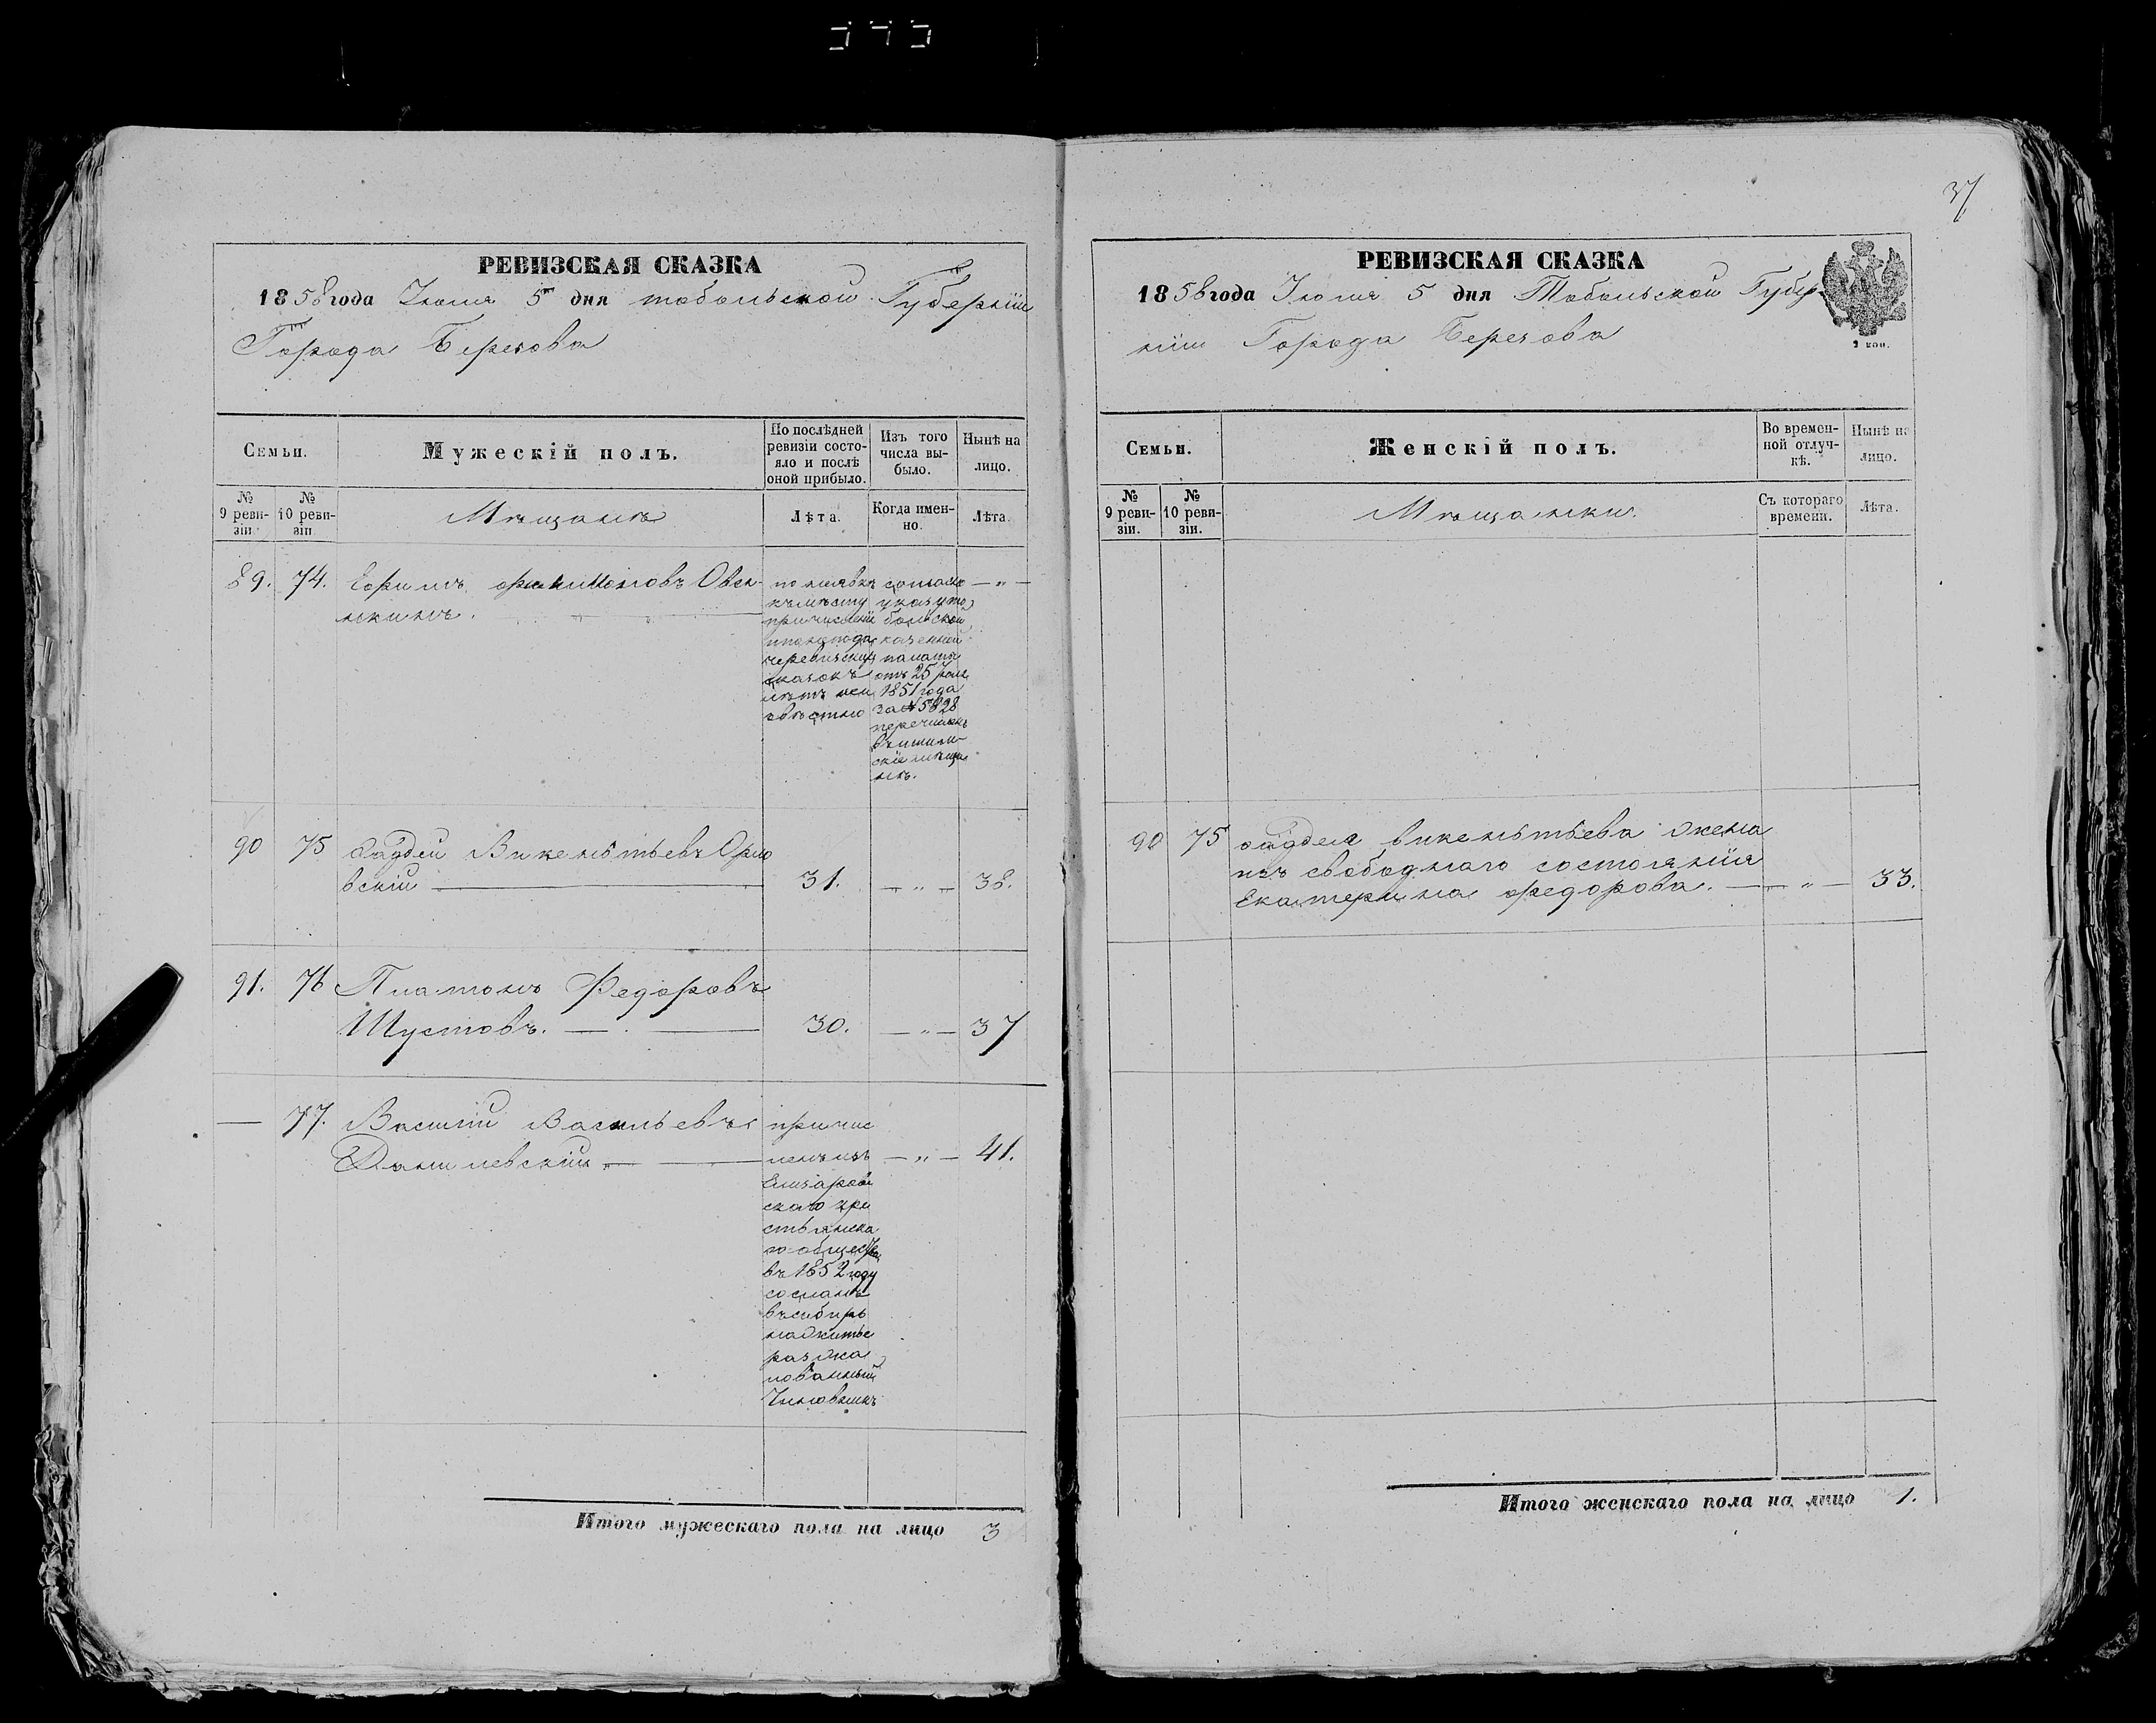 37
РЕВИЗСКАЯ СКАЗКА
1858 года Іюля 5 дня тобольской Губерніи
Города Березова
Семьи.
Мужескій полъ.
По послѣдней ревизіи состо-
яло и послѣ
оной прибыло.
Изъ того
числа вы-
было.
Нынѣ на
лицо.
№
9 реви-
зіи.
№
10 реви-
зіи
Мѣщанъ
Лѣта.
Когда имен-
но.
Лѣта.
89. 74.
Ефимъ
нкинъ.
сказокъ
согласно
указу то
больской
казенной
палаты
отъ 25
1851 года
за № 5828
перечисленъ
— „ —
90 75
Фадѣй Викентьевъ Орло
вскій
31. — „ — 38.
91. 76
Платонъ Федоровъ
Шустовъ.
30. — „ — 37
— 77.
Василій Васильевъ
Данилевскій
причис
ленъ изъ
скаго кре
стьянска
го общества
въ 1852 году
сосланъ
въ сибирь
на житье
разжа
лованный
Чиновникъ
— „ — 41.
Итого мужескаго пола на лицо 3
РЕВИЗСКАЯ СКАЗКА
1858 года Іюля 5 дня Тобольской Губер-
ніи Города Березова
2 коп.
Семьи.
Женскій полъ.
Во времен-
ной отлуч-
кѣ.
Нынѣ на
лицо.
№
9 реви-
зіи.
№
10 реви-
зіи.
Мѣщанки.
Съ котораго
времени.
Лѣта.
90 75
Фадѣя викентьева жена
изъ свободнаго состоянія
Екатерина федорова. — „ — 33.
Итого женскаго пола на лицо 1.